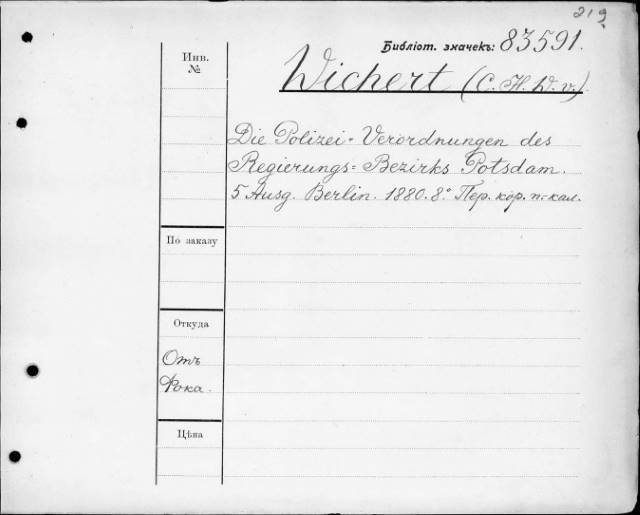 219
Библіот. значекъ: 83591.
Инв.
№
Wichert (C. H. W. v.)
Die Polizei=Verordnungen des
Regierungs=Bezirks Potsdam.
5 Ausg. Berlin. 1880. 8° Пер. кор. п.-кал.
По заказу
Откуда
Отъ
Фока.
Цѣна